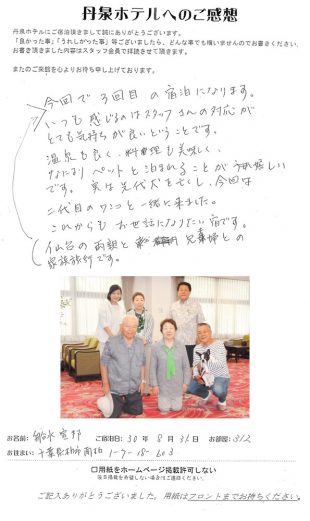 丹泉ホテルへのご感想
丹泉ホテルにご宿泊頂きまして誠にありがとうございます。
「良かった事」「うれしかった事」等ございましたら、どんな事でも構いませんのでお書きください。
お書き頂きました内容はスタッフ全員で拝読させて頂きます。
またのご来館を心よりお待ち申し上げております。
今回で3回目の宿泊になります。
いつも感じるのはスタッフさんの対応が
とても気持ちが良いということです。
温泉も良く、料理も美味しく、
なにより ペットと泊まれることが嬉しい
です。実は先代犬を亡くし、今回は
二代目のワンコと一緒に来ました。
これからも お世話になりたい宿です。
仙台の両親と 兄妻との
家族旅行です。
お名前: ご宿泊日: 30 年 8 月 31 日 お部屋: 312
お住まい: 千葉県柏市 1-9-18-603
□用紙をホームページ掲載許可しない
ご記入ありがとうございました。用紙はフロントまでお持ちください。